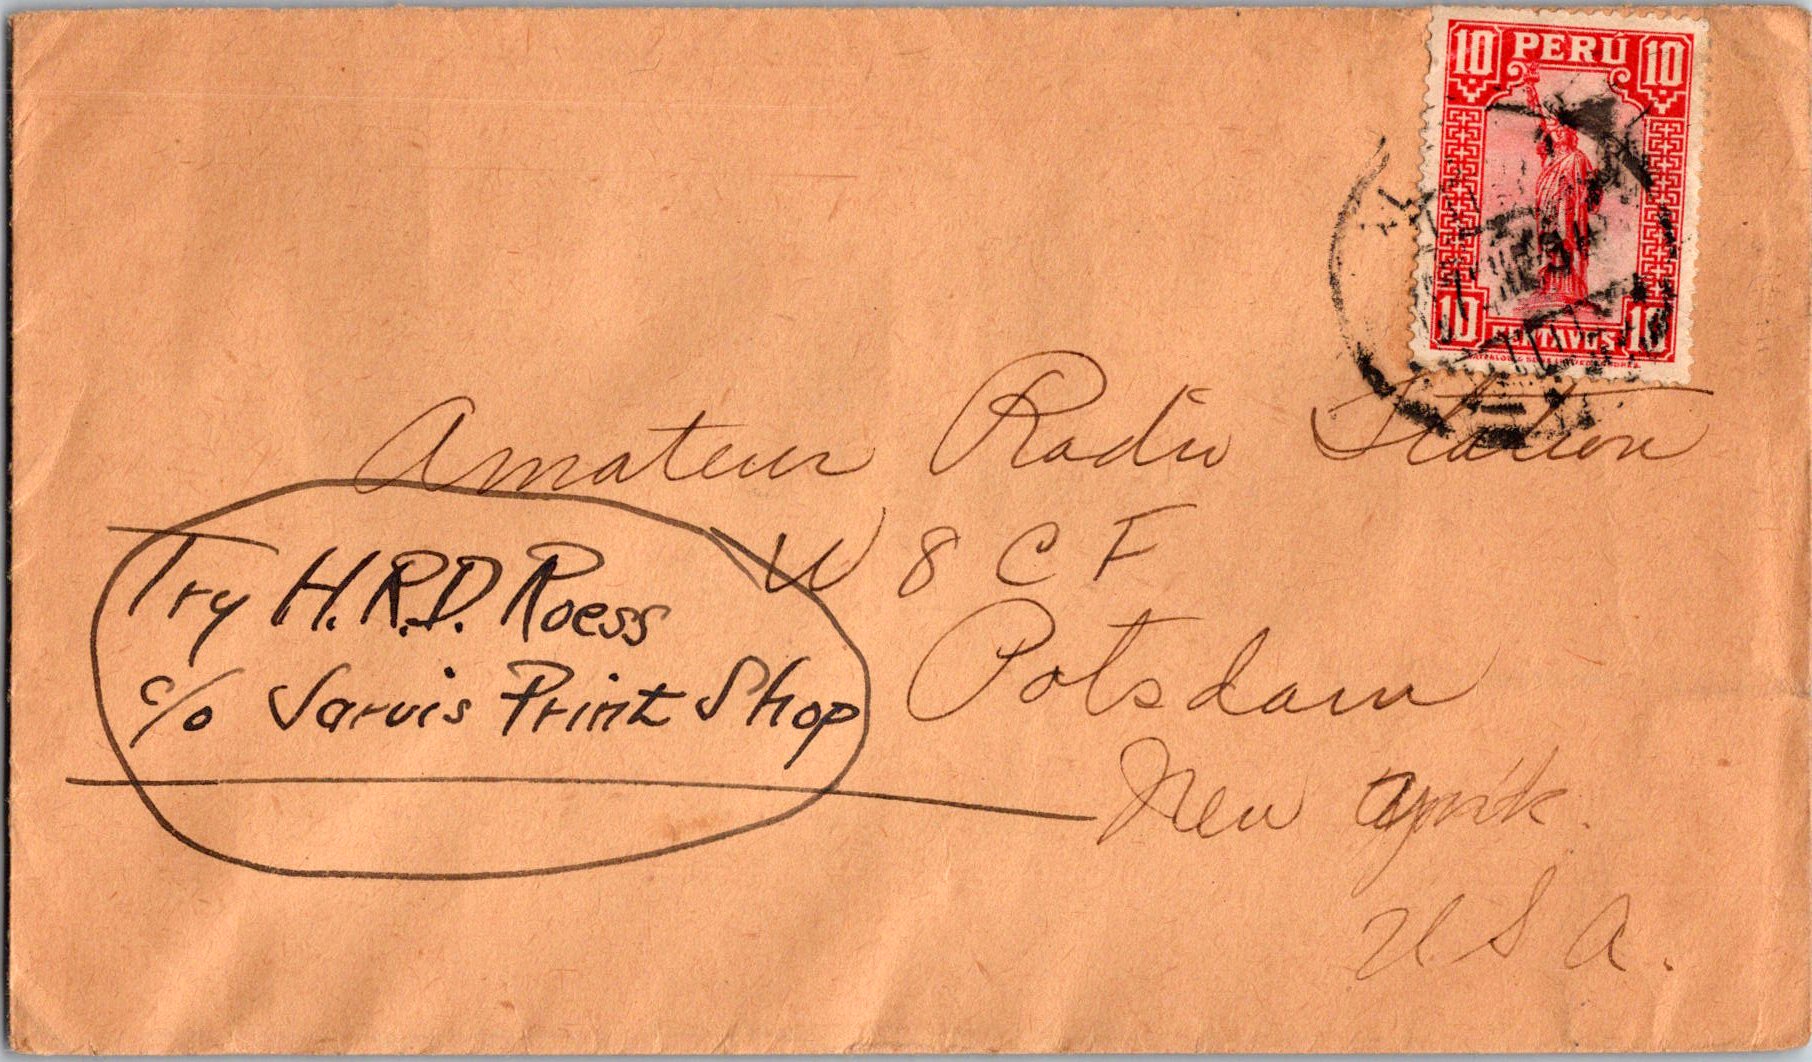 10 PERÚ 10
10 CENTAVOS 10
Amateur Radio Station
W 8 C F
Potsdam
New York.
U.S.A.
Try H.R.D. Roess
c/o Jarvis Print Shop